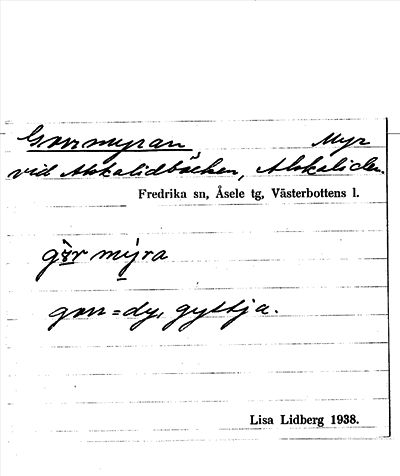 Gorrmyran, Myr
vid Alskalidbäcken, Alskaliden.
Fredrika sn, Åsele tg, Västerbottens l.
gòr mýra
gorr = dy, gyttja.
Lisa Lidberg 1938.